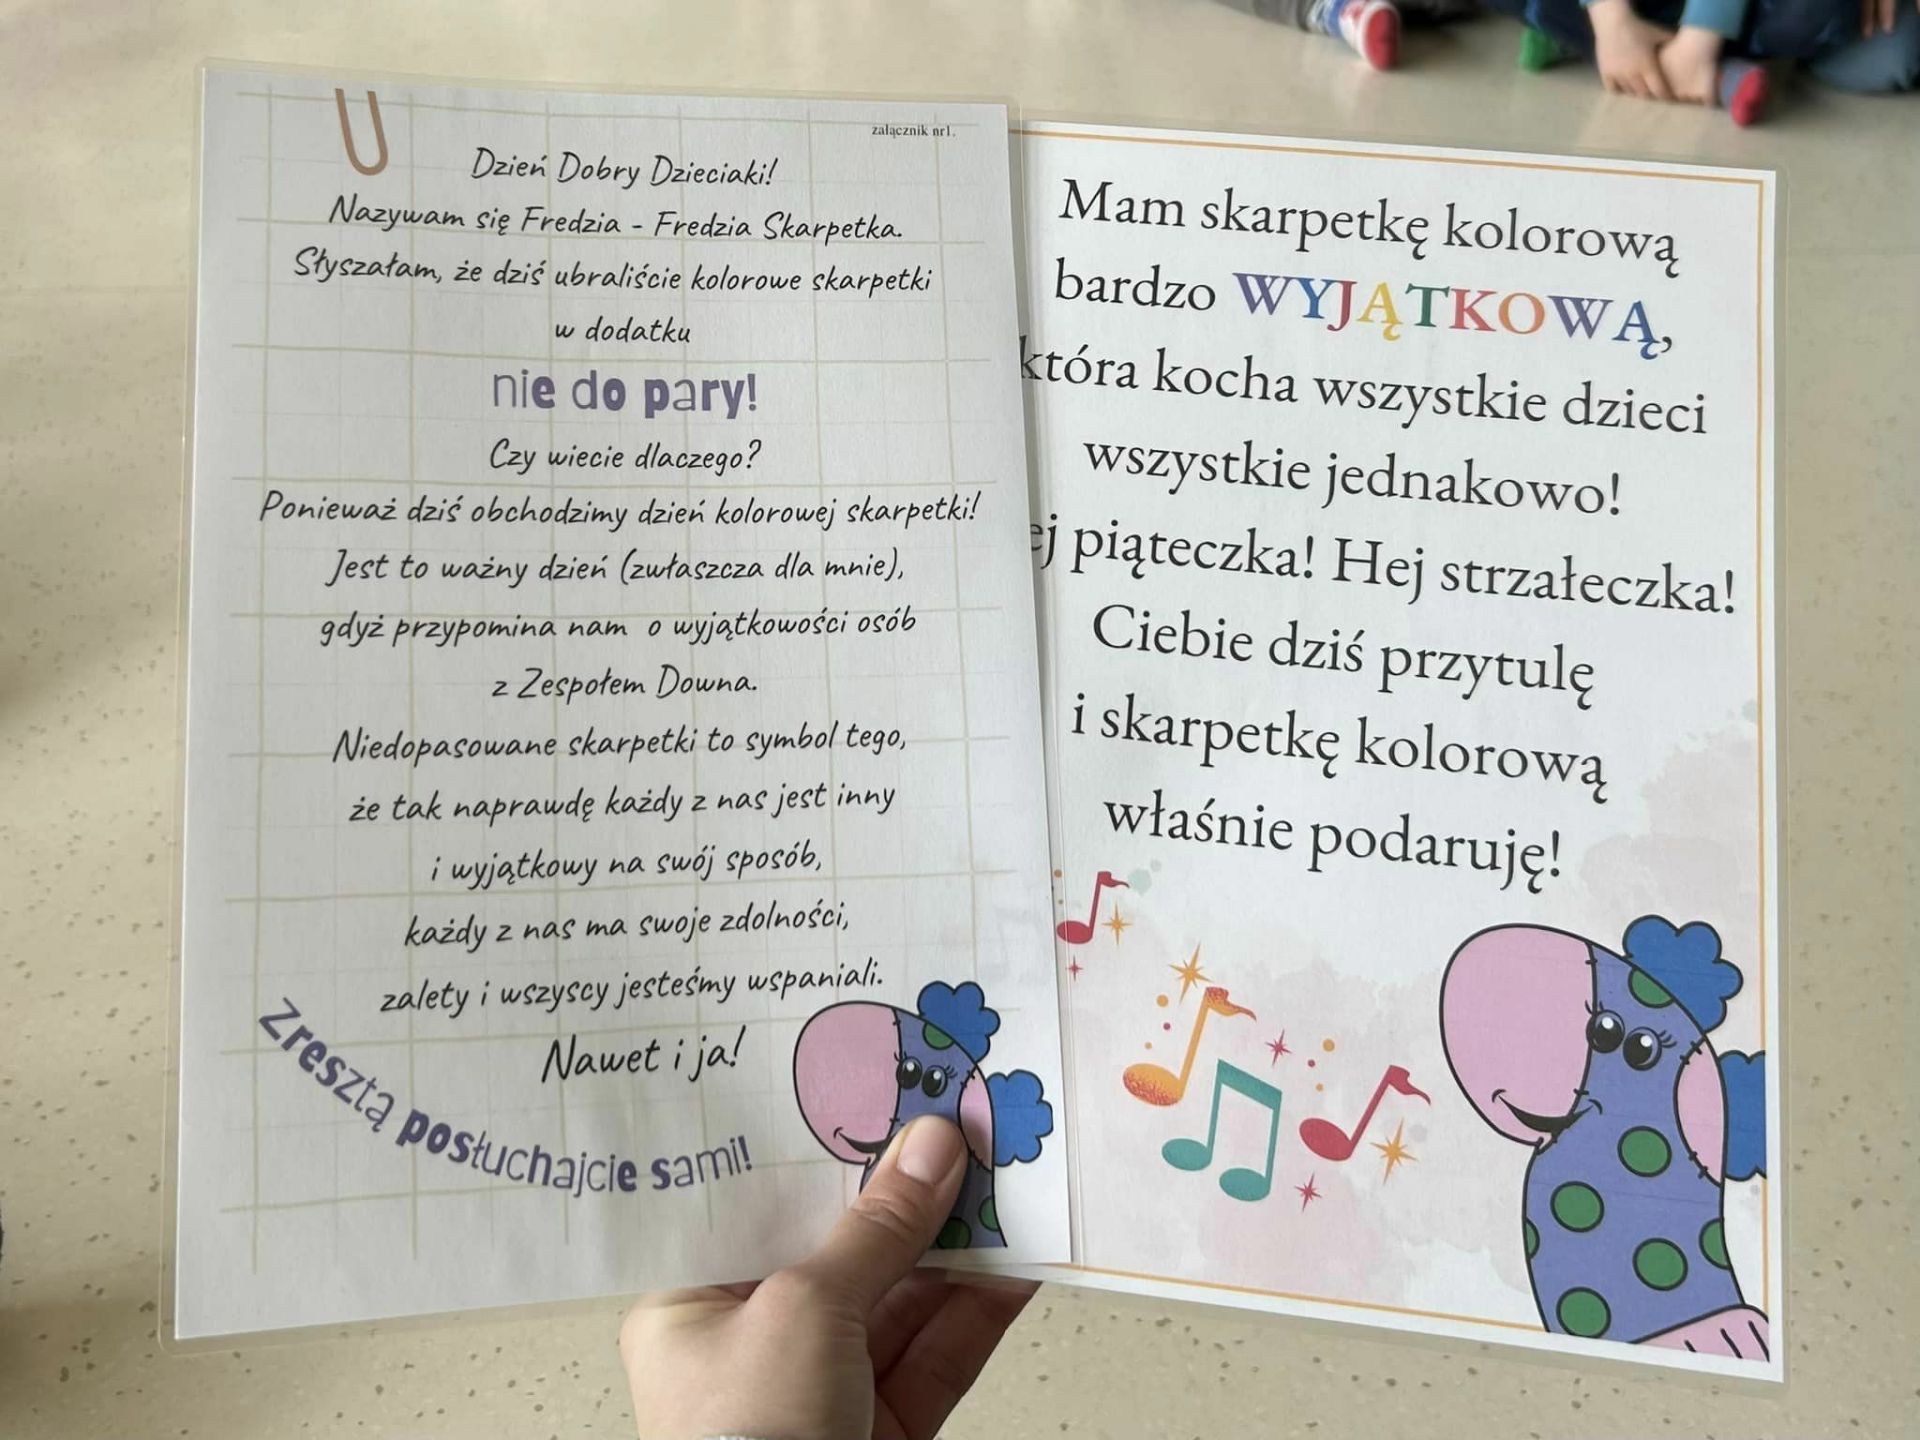 załącznik nr1.
Dzień Dobry Dzieciaki!
Nazywam się Fredzia - Fredzia Skarpetka.
Słyszałam, że dziś ubraliście kolorowe skarpetki
w dodatku
nie do pary!
Czy wiecie dlaczego?
Ponieważ dziś obchodzimy dzień kolorowej skarpetki!
Jest to ważny dzień (zwłaszcza dla mnie),
gdyż przypomina nam o wyjątkowości osób
z Zespołem Downa.
Niedopasowane skarpetki to symbol tego,
że tak naprawdę każdy z nas jest inny
i wyjątkowy na swój sposób,
każdy z nas ma swoje zdolności,
zalety i wszyscy jesteśmy wspaniali.
Nawet i ja!
Zresztą posłuchajcie sami!
Mam skarpetkę kolorową
bardzo WYJĄTKOWĄ,
która kocha wszystkie dzieci
wszystkie jednakowo!
ej piąteczka! Hej strzałeczka!
Ciebie dziś przytulę
i skarpetkę kolorową
właśnie podaruję!